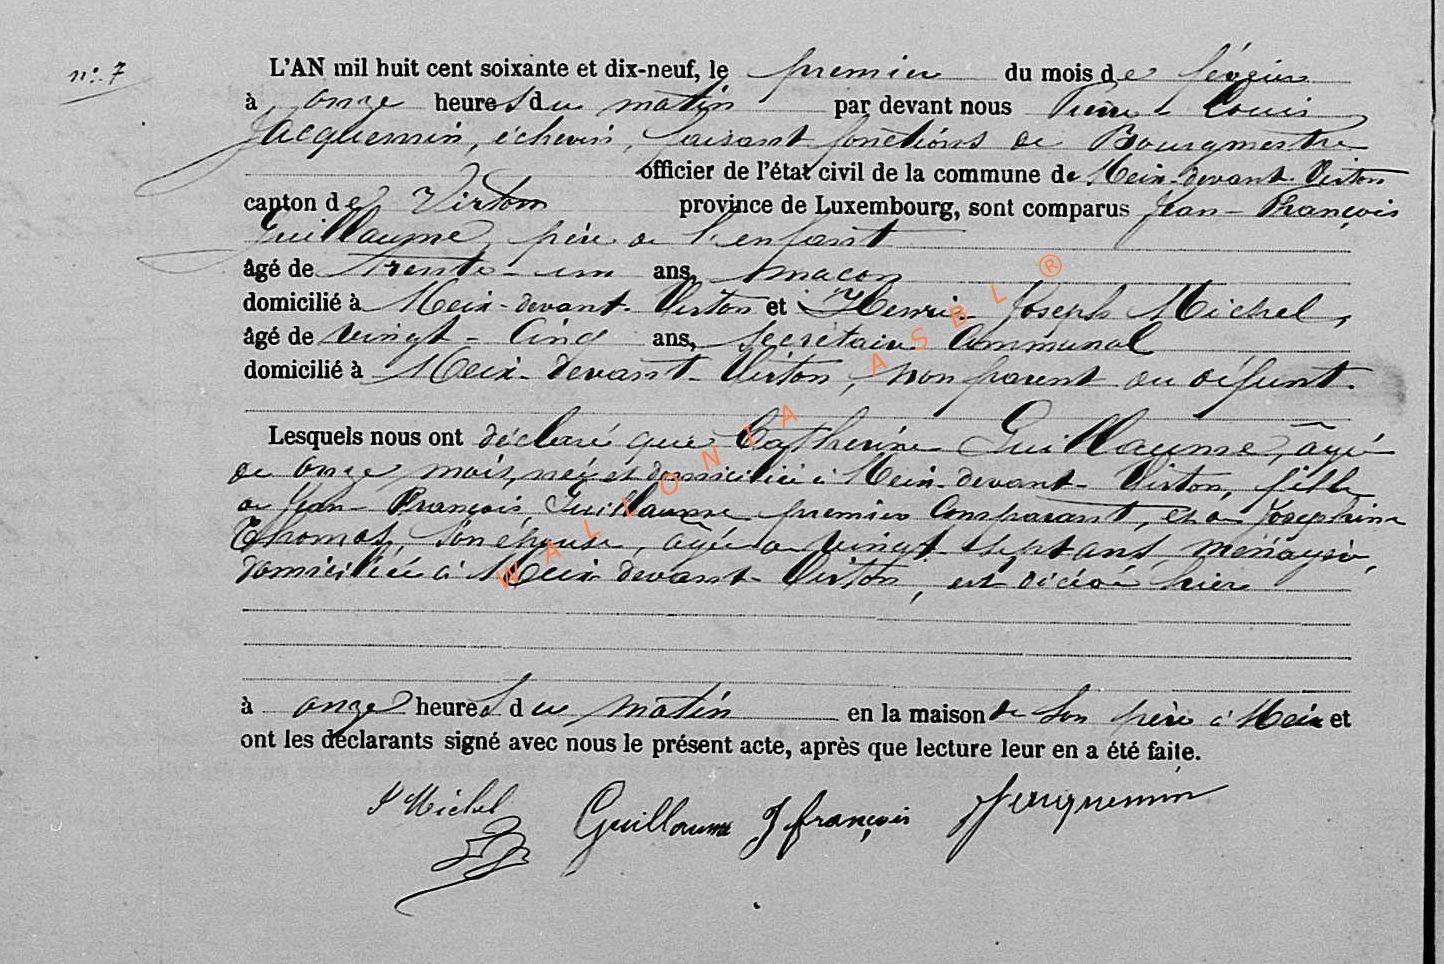 n° 7
L'AN mil huit cent soixante et dix-neuf, le premier du mois de février
à onze heures du matin par devant nous Pierre-Louis
Jacquemin, échevin, faisant fonctions de Bourgmestre
officier de l'état civil de la commune de Meix-devant-Virton
canton de Virton province de Luxembourg, sont comparus Jean-François
Guillaume, père de l'enfant
âgé de trente-un ans, maçon
domicilié à Meix-devant-Virton et Henri-Joseph Michel,
âgé de vingt-cinq ans, secrétaire communal
domicilié à Meix-devant-Virton, non parent du défunt.
Lesquels nous ont déclaré que Catherine Guillaume, âgée
de onze mois, née et domiciliée à Meix-devant-Virton, fille
de Jean-François Guillaume premier comparant, et de Joséphine
Thomas, son épouse, âgée de vingt-sept ans, ménagère,
domiciliée à Meix-devant-Virton, est décédée hier
à onze heures du matin en la maison de son père à Meix et
ont les déclarants signé avec nous le présent acte, après que lecture leur en a été faite.
J Michel Guillaume J françois Jacquemin
WALLONIA ASBL ®